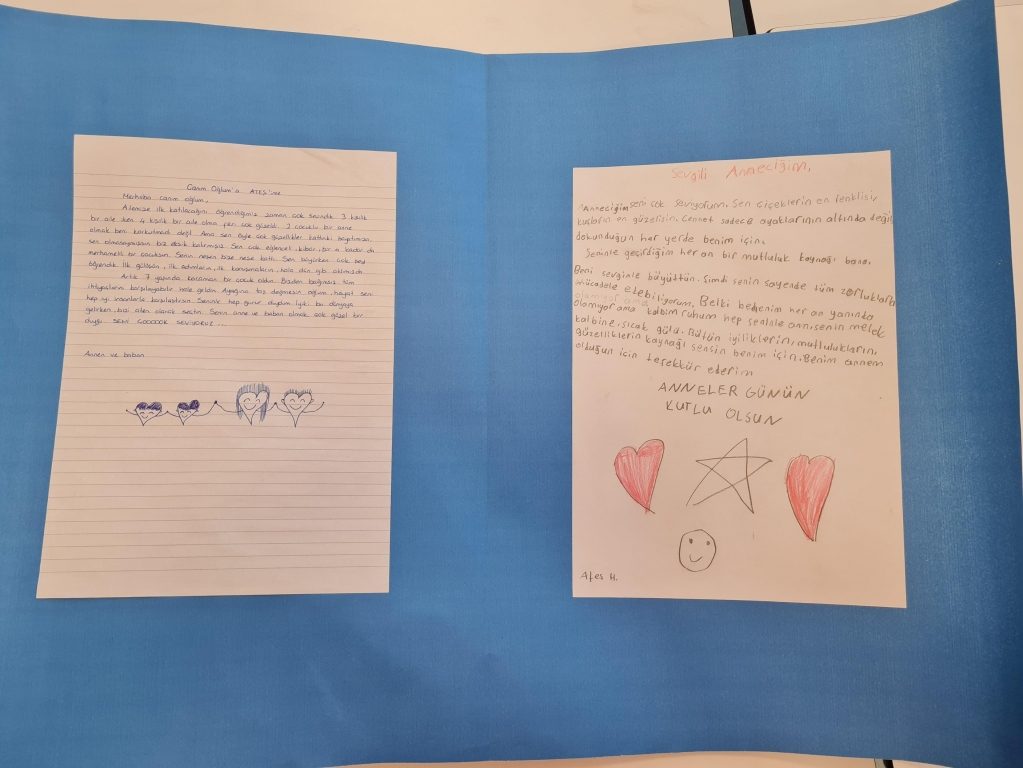 Canım Oğlum'a ATEŞ'ime
Merhaba canım oğlum,
Ailemize ilk katılacağını öğrendiğimiz zaman çok sevindik 3 kişilik
bir aile iken 4 kişilik bir aile olma fikri çok güzeldi. 2 çocuklu bir anne
olmak beni korkutmadı değil. Ama sen öyle çok güzellikler kattınki hayatımıza,
sen olmasaymışsın biz eksik kalırmışız. Sen çok eğlenceli, kibar, bir o kadar da
merhametli bir çocuksun. Senin neşen bize neşe kattı. Sen büyürken çok şey
öğrendik. İlk gülüşün, ilk adımların, ilk konuşmaların, hala dün gibi aklımızda.
Artık 7 yaşında kocaman bir çocuk oldun. Bizden bağımsız tüm
ihtiyaçlarını karşılayabilir hale geldin. Ayağına taş değmesin oğlum, hayat seni
hep iyi insanlarla karşılaştırsın. Seninle hep gurur duydum. İyiki bu dünyaya
gelirken, bizi ailen olarak seçtin. Senin anne ve baban olmak çok güzel bir
duygu. SENİ ÇOOOOOK SEVİYORUZ...
Annen ve baban
Sevgili Anneciğim,
Anneciğim seni çok seviyorum. Sen çiçeklerin en renklisi,
kuşların en güzelisin. Cennet sadece ayaklarının altında değil
dokunduğun her yerde benim için.
Seninle geçirdiğim her an bir mutluluk kaynağı bana.
Beni sevginle büyüttün. Şimdi senin sayende tüm zorluklarla
mücadele edebiliyorum. Belki bedenim her an yanında
olamıyor ama
olamıyor ama kalbim ruhum hep seninle anne, senin melek
kalbine, sıcak gülü. Bütün iyiliklerin, mutlulukların,
güzelliklerin kaynağı sensin benim için. Benim annem
olduğun için teşekkür ederim
ANNELER GÜNÜN
KUTLU OLSUN
Ateş H.